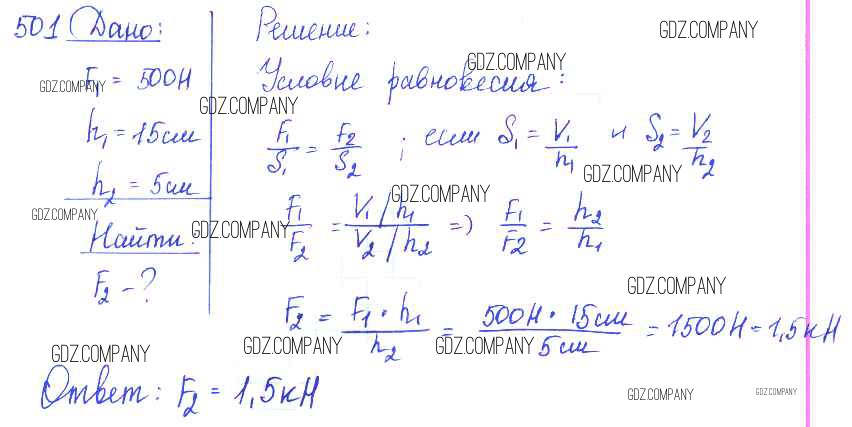 501 Дано:
F₁ = 500Н
h₁ = 15см
h₂ = 5см
Найти:
F₂ - ?
Решение:
Условие равновесия:
F₁/S₁ = F₂/S₂ ; если S₁ = V₁/h₁ и S₂ = V₂/h₂
F₁/F₂ = (V₁/h₁)/(V₂/h₂) => F₁/F₂ = h₂/h₁
F₂ = (F₁ · h₁)/h₂ = (500Н · 15см)/5см = 1500Н = 1,5кН
Ответ: F₂ = 1,5кН
GDZ.COMPANY
GDZ.COMPANY
GDZ.COMPANY
GDZ.COMPANY
GDZ.COMPANY
GDZ.COMPANY
GDZ.COMPANY
GDZ.COMPANY
GDZ.COMPANY
GDZ.COMPANY
GDZ.COMPANY
GDZ.COMPANY
GDZ.COMPANY
GDZ.COMPANY